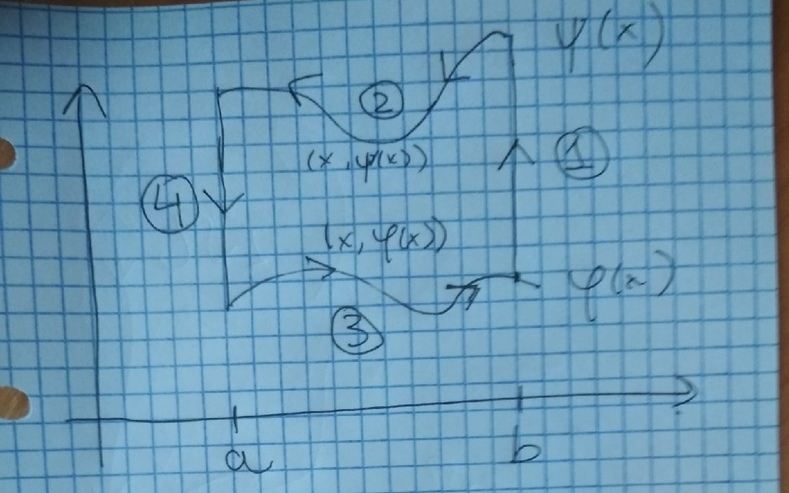 ψ(x)
②
(x, ψ(x))
①
④
(x, φ(x))
φ(x)
③
a
b